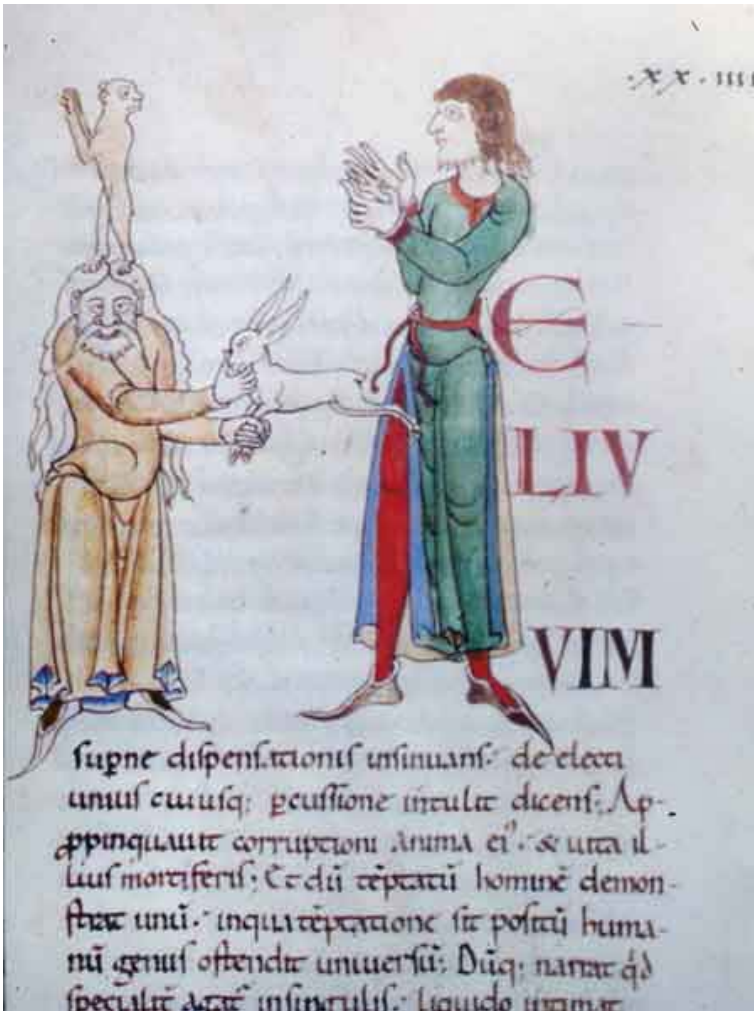 ·xx·IIII
E
LIV
VIM
supne dispensationis insinuans· de electi
unius cuiusq; pcussione intulit dicens; Ap-
ppinquauit corruptioni anima ei᾿· & uita il-
lius mortiferis; Et dū tēptatū hominē demon-
strat unū· inqua tēptatione sit positū huma-
nū genus ostendit uniuersū; Dūq; narrat qd
specialit agat insingulis· liquido intimat